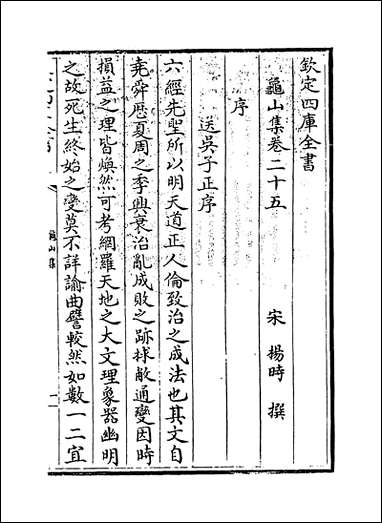 欽定四庫全書
龜山集卷二十五　　宋　楊時　撰
序
送吳子正序
六經先聖所以明天道正人倫致治之成法也其文自
堯舜歷夏周之季興衰治亂成敗之跡捄敝通變因時
損益之理皆煥然可考網羅天地之大文理象器幽明
之故死生終始之變莫不詳諭曲譬較然如數一二宜
龜山集